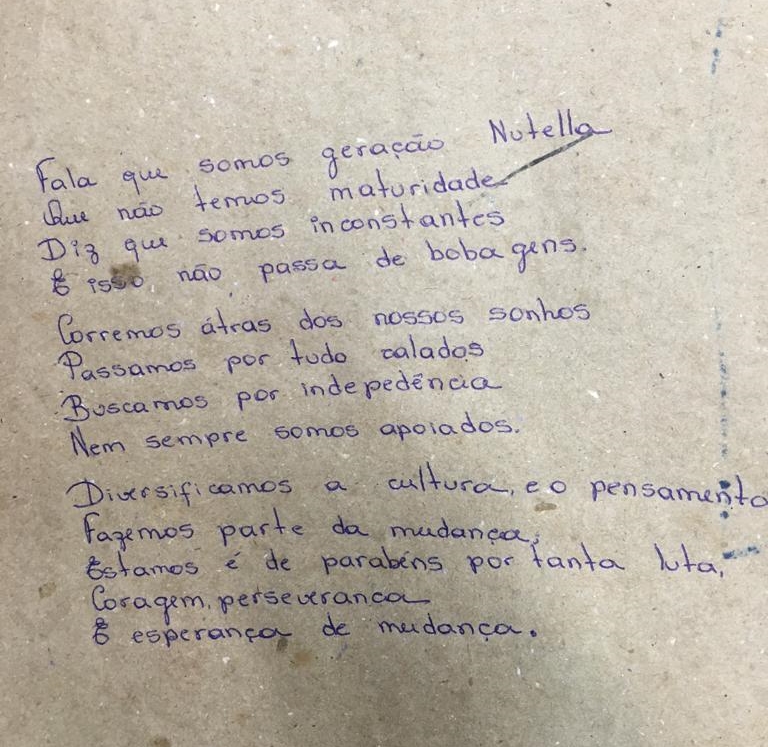 Fala que somos geração Nutella
Que não temos maturidade
Diz que somos inconstantes
E isso, não, passa de bobagens.
Corremos átras dos nossos sonhos
Passamos por tudo calados
Buscamos por indepedência
Nem sempre somos apoiados.
Diversificamos a cultura, e o pensamento
Fazemos parte da mudança,
Estamos é de parabéns por tanta luta,
Coragem, perseveranca
E esperança de mudança.